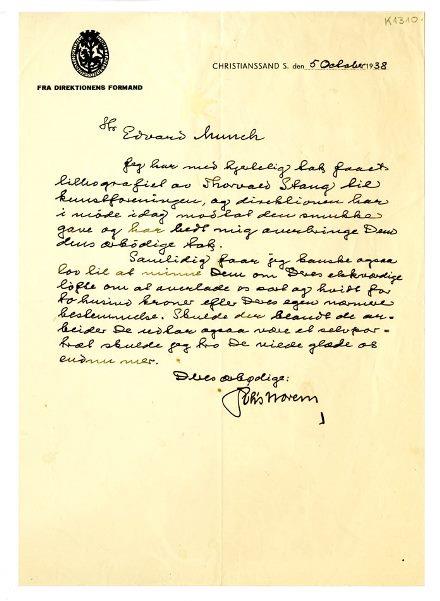 K1310.
CHRISTIANSSAND S. den 5 October 1938
FRA DIREKTIONENS FORMAND
Hr Edvard Munch
Jeg har med hjertelig tak faaet
lithografiet av Thorvald Stang til
kunstforeningen, og direktionen har
i möde idag mottat den smukke
gave og har bedt mig overbringe Dem
dens ærbödige tak.
Samtidig faar jeg kanske ogsaa
lov til at minne Dem om Deres elskværdige
löfte om at overlade os sort og hvidt for
to tusind kroner efter Deres egen nærmere
bestemmelse. Skulde der blandt de ar-
beider De uthar ogsaa være et selvpor-
træt skulde jeg tro De vilde glæde os
endnu mer.
Deres ærbödige: